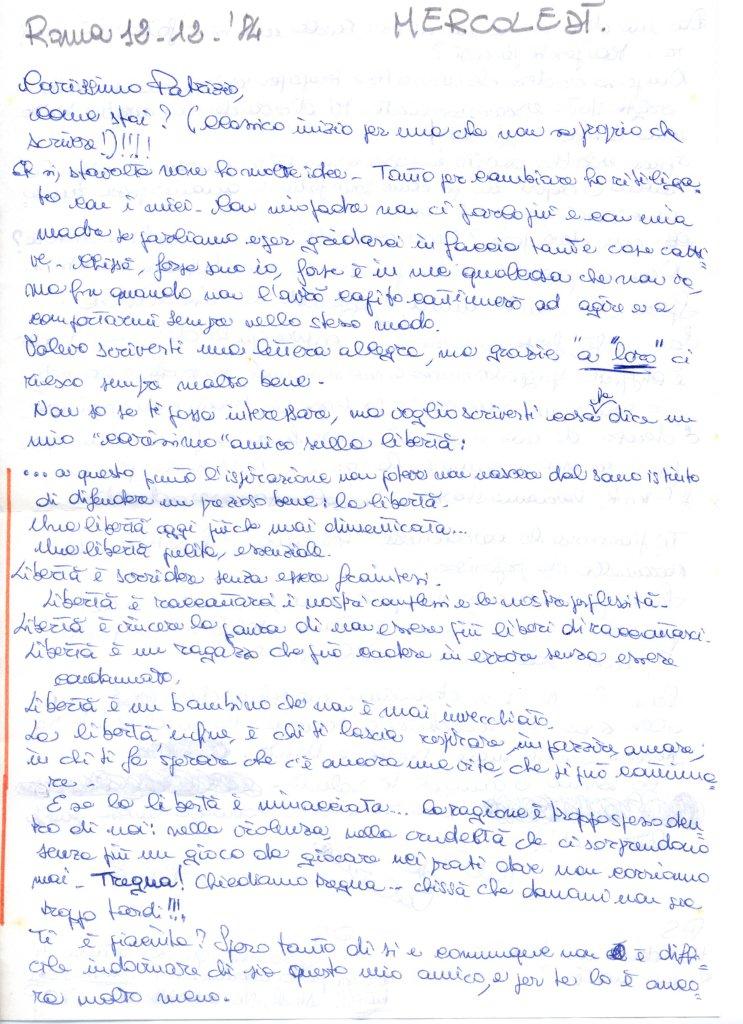 Roma 12-12-'84 MERCOLEDÌ.
Carissimo Fabrizio,
come stai? (Classico inizio per una che non sa proprio che
scrivere!)!!!!
Eh sì, stavolta non ho molte idee - Tanto per cambiare ho ritiliga-
to con i miei. Con mio padre non ci parlo più e con mia
madre se parliamo è per gridarci in faccia tante cose catti-
ve. Chissà, forse sono io, forse è in me qualcosa che non va,
ma fin quando non l'avrò capito continuerò ad agire e a
comportarmi sempre nello stesso modo.
Volevo scriverti una lettera allegra, ma grazie "a "loro" ci
riesco sempre molto bene -
Non so se ti possa interessare, ma voglio scriverti cosa dice un
mio "carissimo" amico sulla libertà:
... a questo punto l'ispirazione non poteva non nascere dal sano istinto
di difendere un prezioso bene: la libertà.
Una libertà oggi più che mai dimenticata...
Una libertà pulita, essenziale.
Libertà è sorridere senza essere fraintesi.
Libertà è raccontarci i nostri complessi e le nostre perplessità.
Libertà è vincere la paura di non essere più liberi di raccontarsi.
Libertà è un ragazzo che può cadere in errore senza essere
condannato,
Libertà è un bambino che non è mai invecchiato.
La libertà infine, è chi ti lascia respirare, impazzire, amare;
in chi ti fa sperare che c'è ancora una vita, che si può cammina-
re -
E se la libertà è minacciata... la ragione è troppo spesso den-
tro di noi: nella violenza, nella crudeltà che ci sorprendono
senza più un gioco da giocare nei prati dove non corriamo
mai - Tregua! Chiediamo tregua... chissà che domani non sia
troppo tardi!!!
Ti è piaciuta? Spero tanto di sì e comunque non è diffi-
cile indovinare chi sia questo mio amico, e per te lo è anco-
ra molto meno.